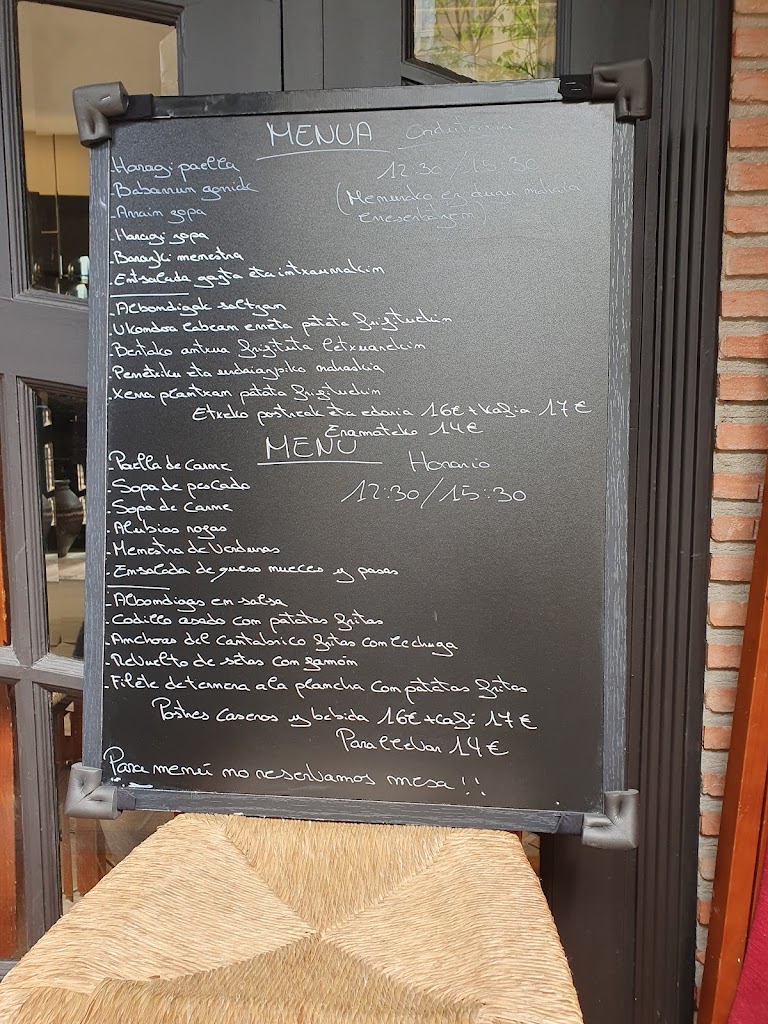 MENUA Ordutegia
Haragi paella 12:30 / 15:30
Babarrun gorriak (Menurako ez dugu mahaia
Arrain sopa erreserbatzen)
Haragi sopa
Barazki menestra
Entsalada gazta eta intxaurrakin
Albondigak saltzan
Ukondoa labean erreta patata frijituekin
Bertako antxua frijituta letxuarekin
Perretxiku eta urdaiazpiko nahaskia
Xerra plantxan patata frijituekin
Etxeko postreak eta edaria 16€ + Kafia 17€
Eramateko 14€
MENÚ Horario
- Paella de Carne 12:30/15:30
- Sopa de pescado
- Sopa de Carne
- Alubias rogas
- Menestra de Verduras
- Ensalada de queso nueces y pasas
- Albondigas en salsa
- Codillo asado con patatas fritas
- Anchoas del Cantabrico fritas con lechuga
- Revuelto de setas con gamón
- Filete de ternera a la plancha con patatas fritas
Postres Caseros y bebida 16€ + café 17€
Para llevar 14€
Para menú no reservamos mesa!!